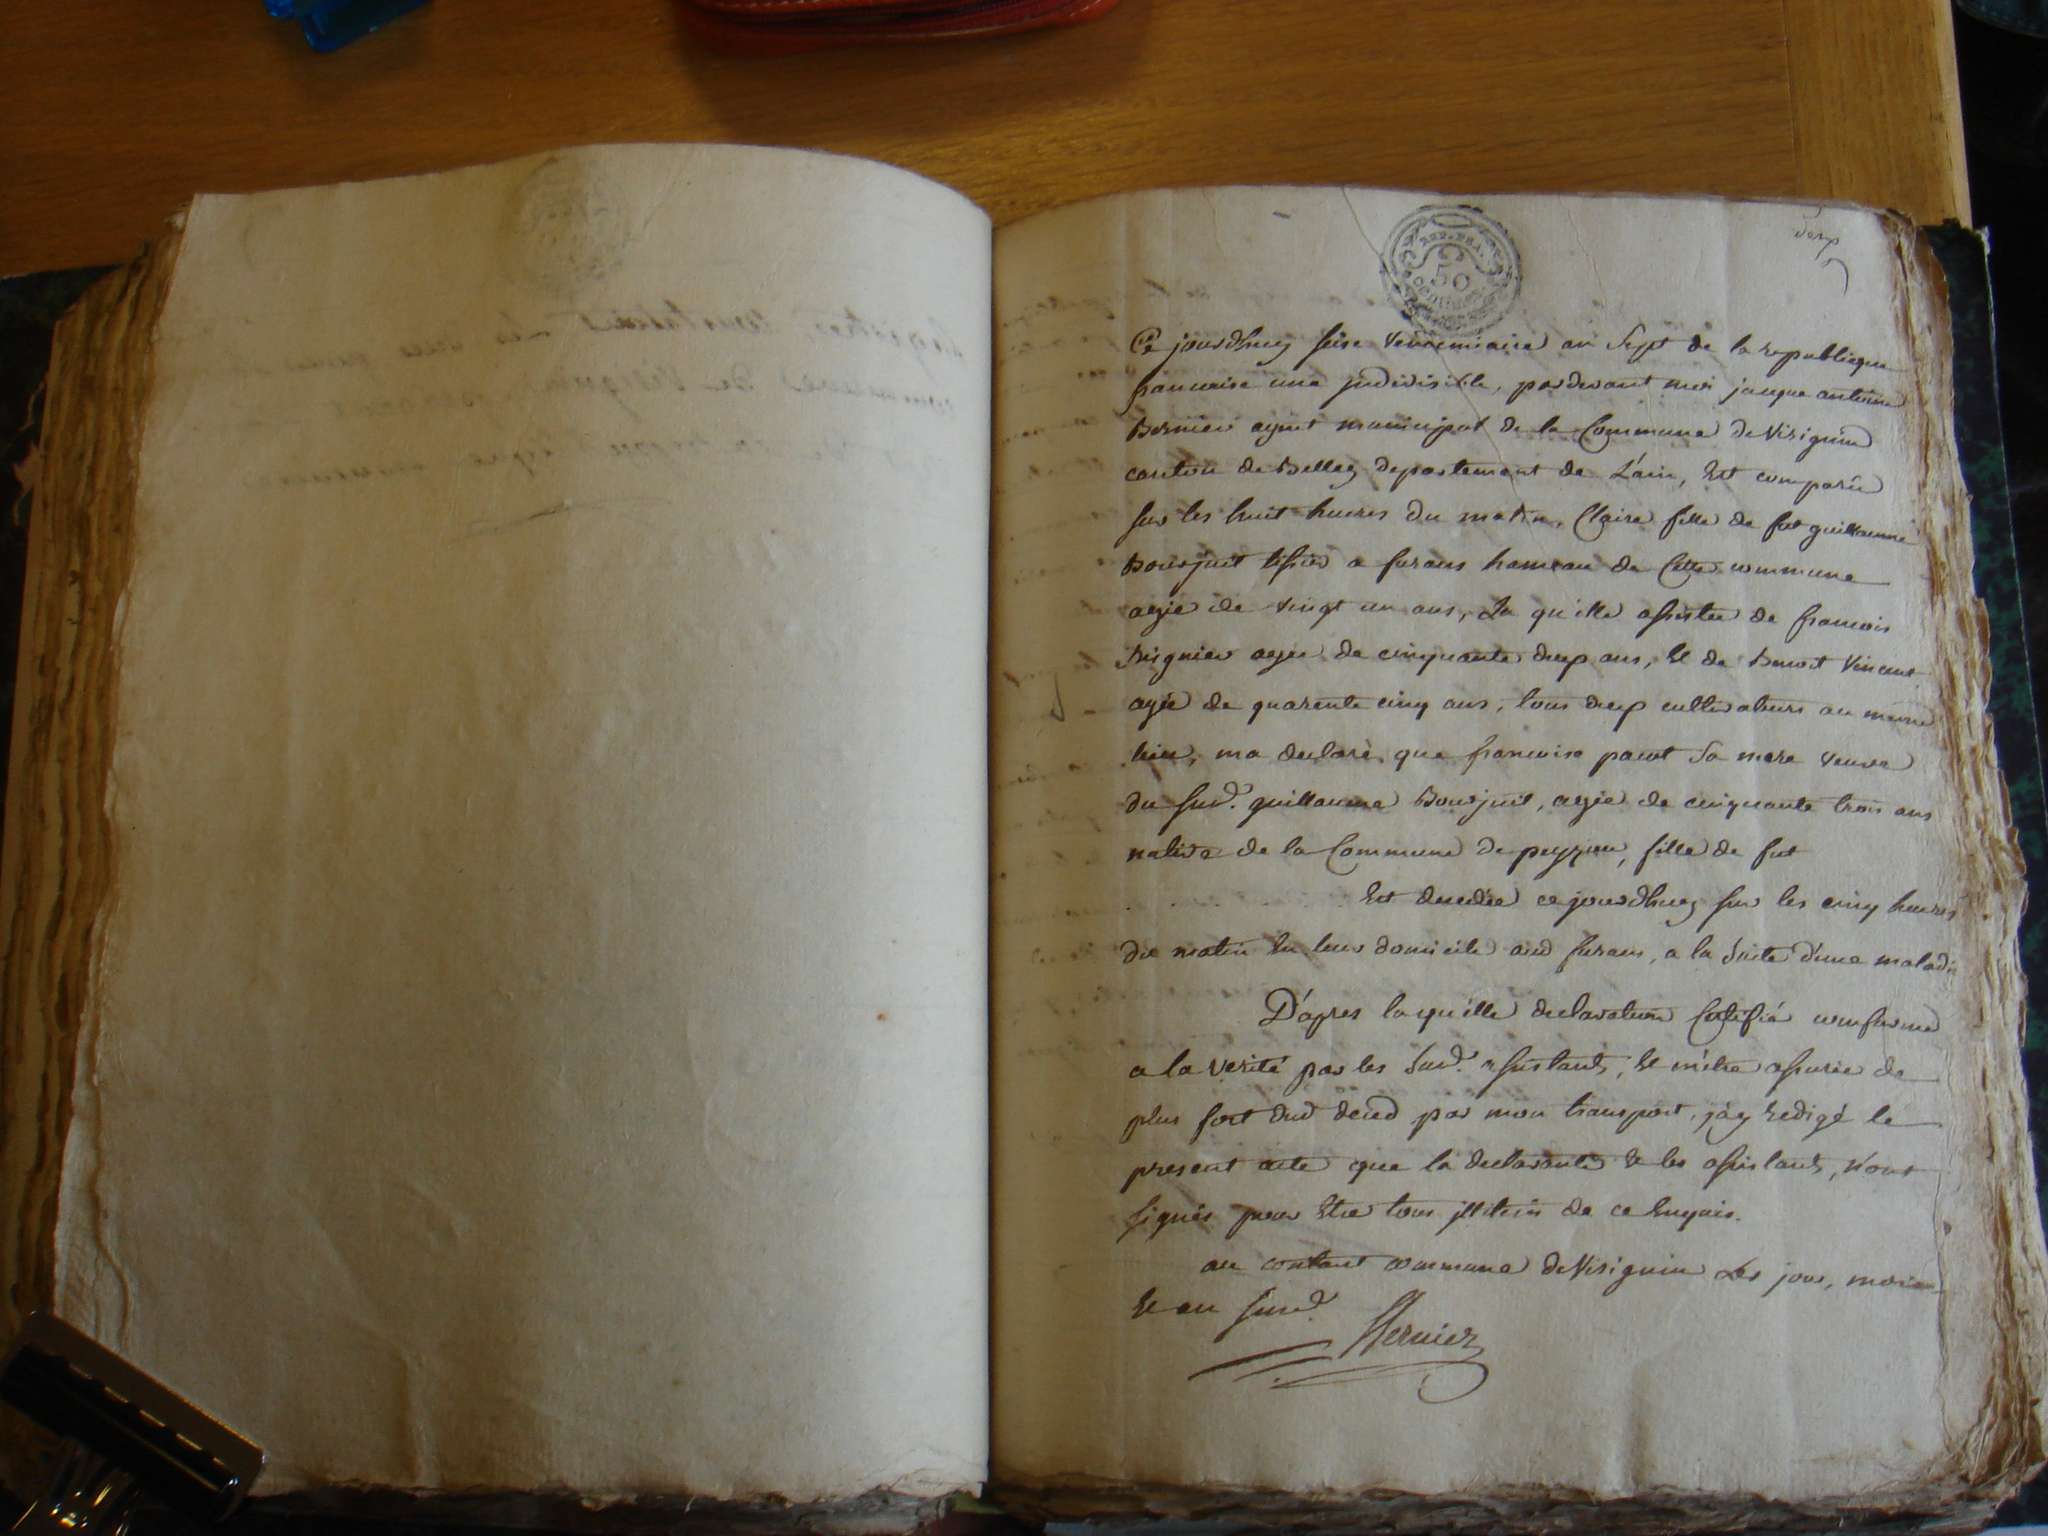 deux
REP. FRA.
50
CENTIMES
Ce jourdhuy seise vendemiaire an sept de la republique
francaise une jndivisible, pardevant moi jacque antoine
Bernier agent municipal de la Commune de Virignin
canton de Belley departement de L'ain, Est comparûe
sur les huit heures du matin, Claire fille de fut guillaume
Bourjuit tisier a furans hameau de Cette commune
agée de vingt un ans, La qu'elle assistée de francois
agée de cinquante deux ans, Et de Benoit Vincent
agée de quarente cinq ans, tous deux cultivateurs au meme
lieu, ma declaré, que francoise pavot sa mere veuve
du surd. guillaume Bourjuit, agée de cinquante trois ans
native de la Commune de peyzieu, fille de fut
Est decedée cejourdhuy sur les cinq heures
du matin En leur domicile aud furans, a la suite d'une maladie
D'apres laqu'elle declaration Certifiée conforme
a la verité par les surd. assistants, Et m'étre assurée de
plus fort dud deced par mon transport, j'ay Redigé le
present acte que la declarante & les assistants, n'ont
signés pour Etre tous jlliterés de ce Enquis.
au contant commune de Virignin Les jour, mois
Et an surd.
Bernier